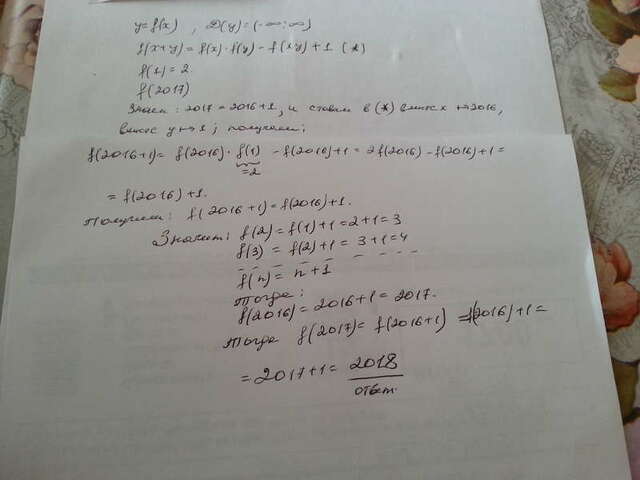 y=f(x) , D(y)=(-∞;∞)
f(x+y)=f(x)·f(y)-f(xy)+1 (*)
f(1)=2
f(2017)
Знаем: 2017=2016+1, и ставим в (*) вместо x ↦ 2016,
вместо y ↦ 1; получаем:
f(2016+1)= f(2016)·f(1) -f(2016)+1=2f(2016)-f(2016)+1=
=2
= f(2016)+1.
Получили: f(2016+1)=f(2016)+1.
Значит: f(2)=f(1)+1=2+1=3
f(3)=f(2)+1=3+1=4
- - - - - - - - -
f(n)=n+1
Тогда:
f(2016)=2016+1=2017.
Тогда f(2017)=f(2016+1)=f(2016)+1=
=2017+1=2018
ответ.